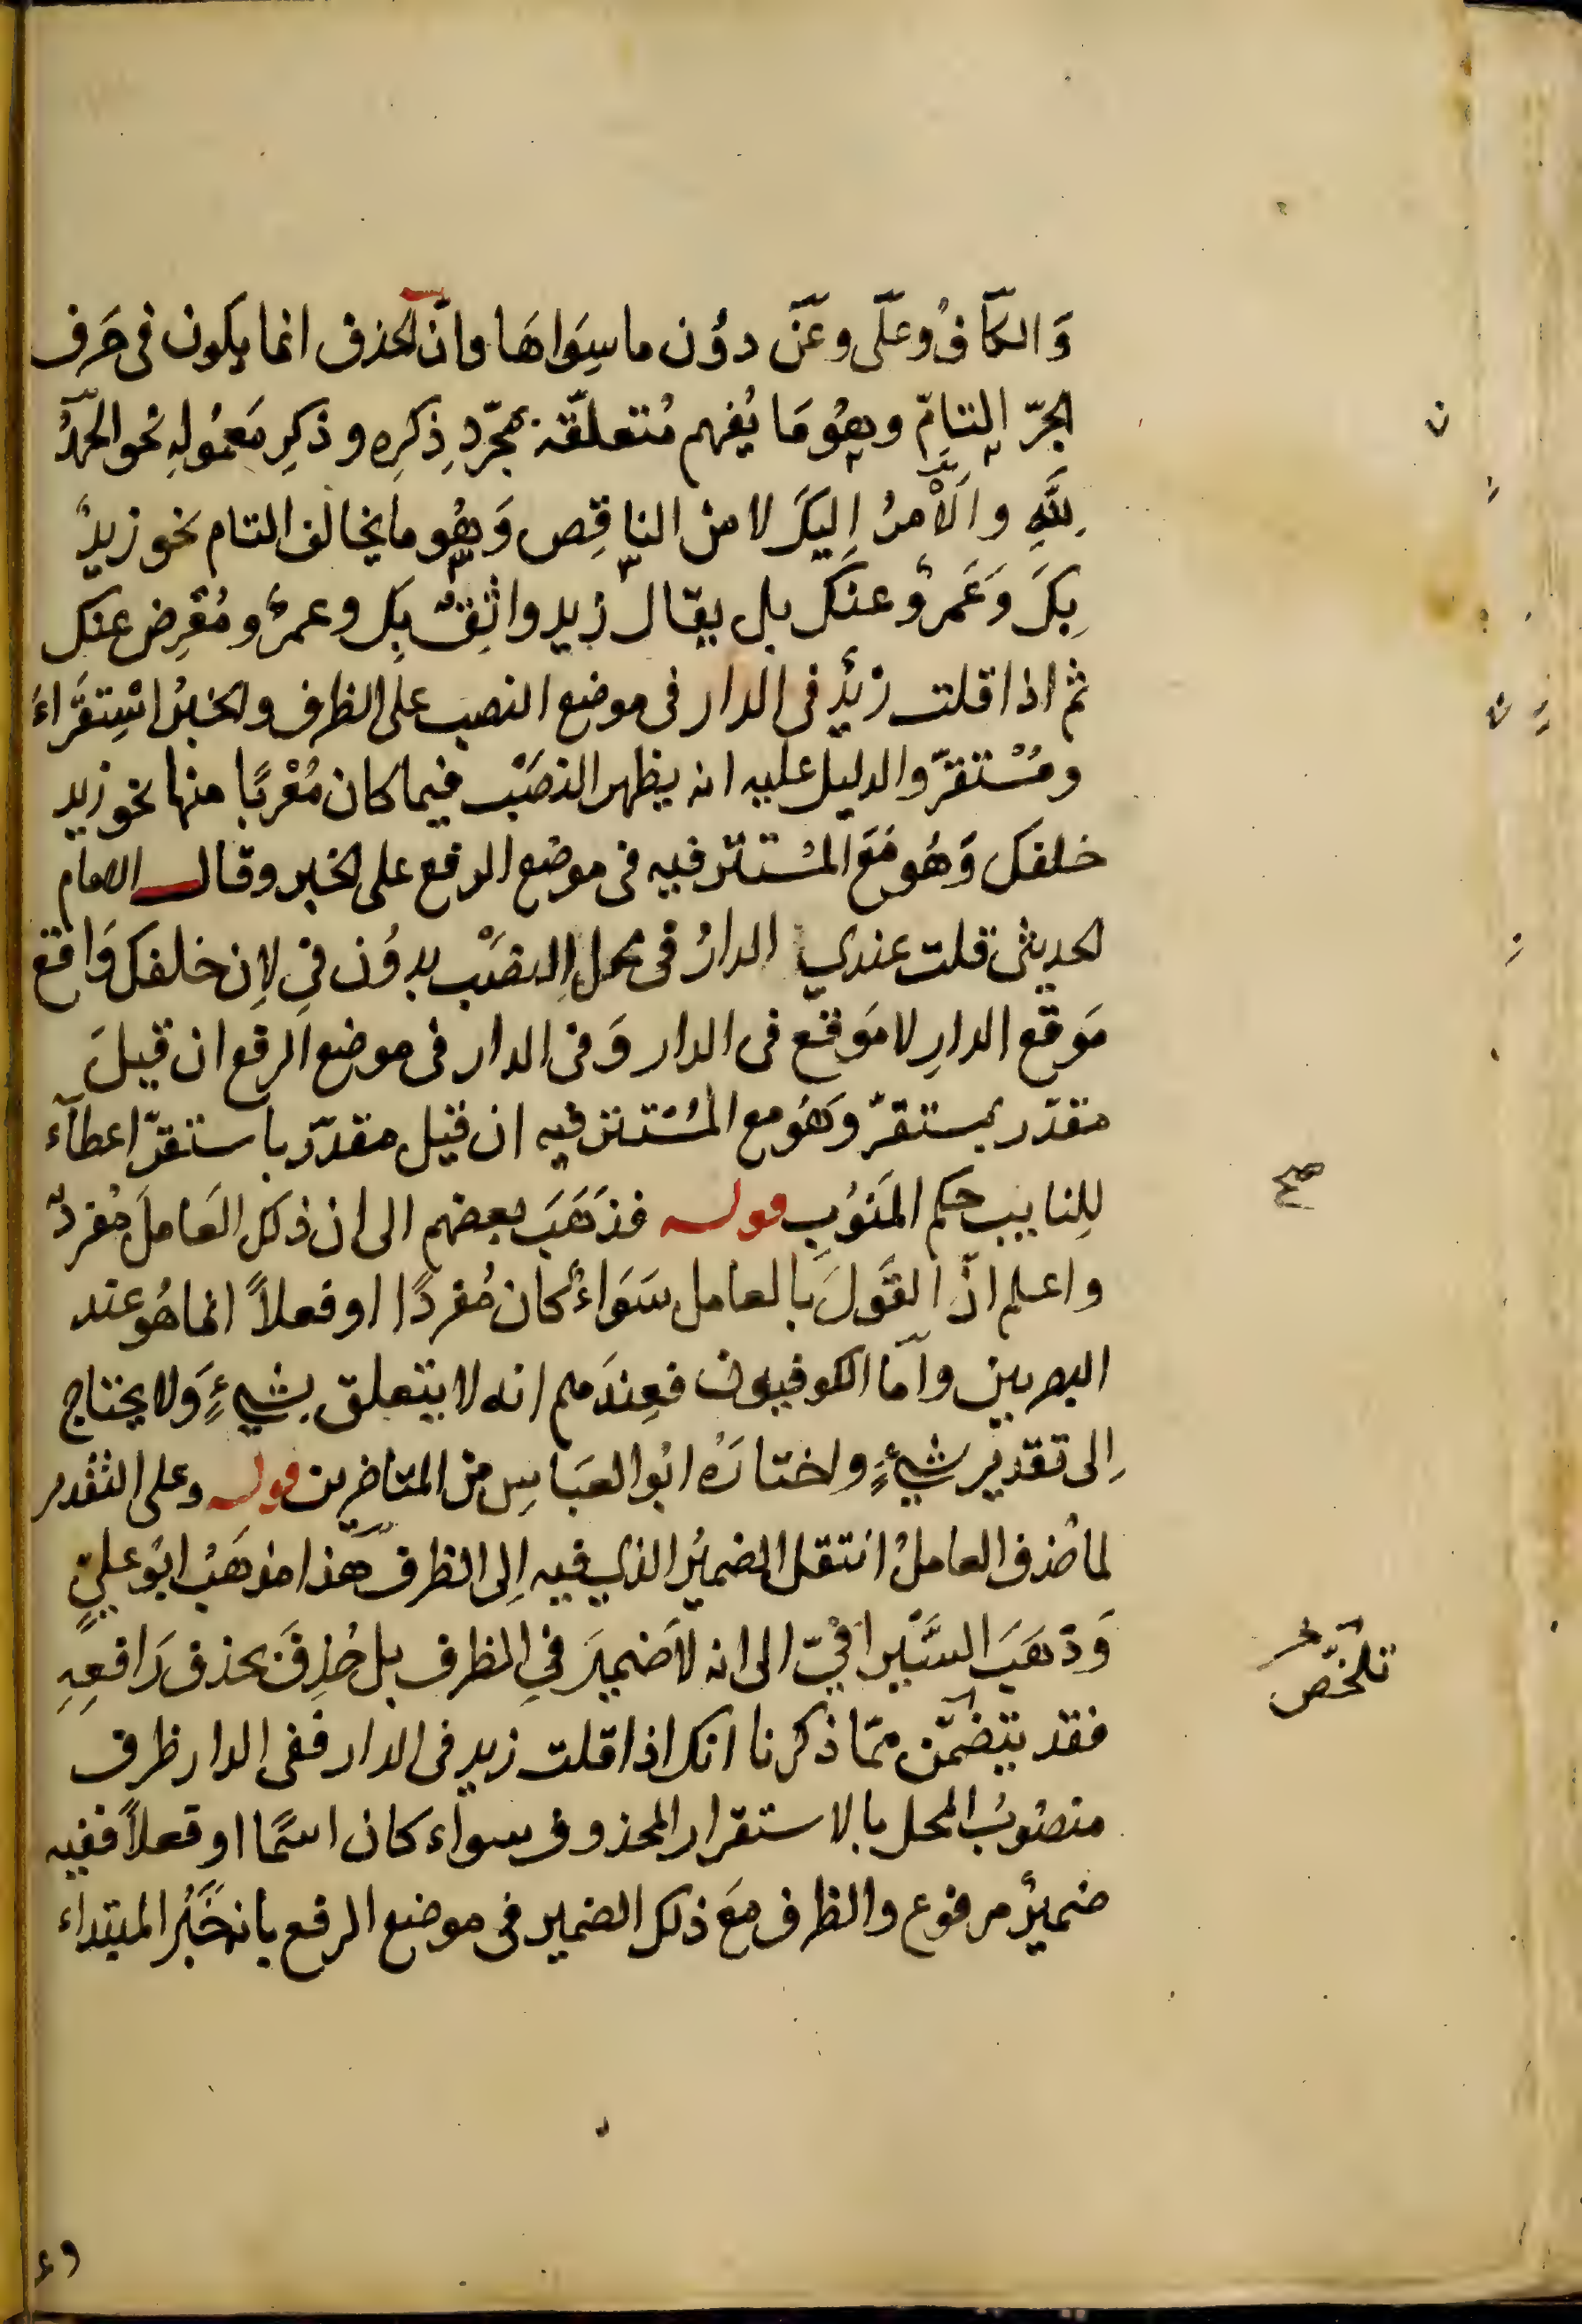 وَالكافُ وعلى وعَنْ دوُن ما سِوَاهَا وانّ الحذف انما يكون فى حَرف
الجرّ التامّ وهُو مَا يُفهم مُتعلقّه بمجّردِ ذِكرِه وذكرِ مَعمُولِهِ نحو الحمدُ
لِلّهِ والاَمرُ اِليكَ لا من الناقِص وَهُو ما يخالف التام نحو زيدٌ
بِكَ وَعَمرٌو عنك بل يقال زيد واثِقٌ بِك وعمرٌو مُعْرِض عنك
ثم اذا قلت زيدٌ فى الدار فى موضع النصب على الظرف والخبرُ اسْتِقَراءَ
ومُسْتقرّ والدليل عليه انه يظهر النصَبْ فيما كان مُعْربًا منها نحو زيد
خلفك وَهُو مَعَ المسْتتر فيه فى موضع الرفع على الخبر وقال الامام
الحديثى قلت عندي الدارُ فى محل النصَبْ بدوُن فى لاِن خلفك وَاقع
مَوقع الدارِ لا مَوقع فى الدار وَفى الدار فى موضع الرفع ان قيلَ
مقدّر بمستقرّ وَهُو مع المسْتتر فيه ان قيل مقدّر باستقرّ اعطآء
للِنايب حكم المَنوُبِ قوله فذَهَبَ بعضهم الى ان ذلك العَاملَ مُفردٌ
واعلم انّ القَولَ بالعامل سَوَاءٌ كان مُفردًا او فعلاً انما هُو عند
البصريين وامّا الكوفيون فعِندَهم انه لا يتعلق بِشيءٍ وَلا يحتاج
اِلى تقدير شيءٍ واختارَهُ ابُو العبَاسِ من المتاخرين قوله وعلى التقدير
لما حُذف العاملُ انتقل الضميرُ الذي فيه اِلى الظرف هَذا مذهَبُ ابوُ عليٍ
وَذهَبَ السَّيرافيّ الى انه لاَ ضميرَ فىِ الظرف بل حُذِفَ بحذف رَافعِهِ
فقد يتضمّن ممّا ذكرنا انك اذا قلت زيد فى الدار ففى الدار ظرف
منصُوبُ المحل بالاستقرار المحذوف سواء كان اسمًا او فعلاً ففيه
ضميرٌ مرفوع والظرف مَعَ ذلك الضمير فى موضع الرفع بانه خَبرُ المبتداء
صح
تلخّص